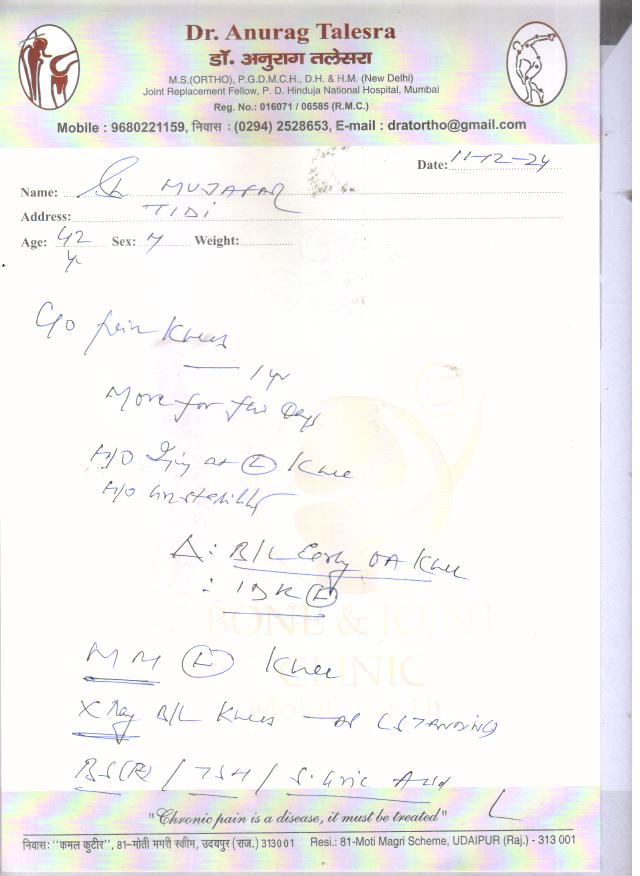 Dr. Anurag Talesra
डॉ. अनुराग तलेसरा
M.S.(ORTHO), P.G.D.M.C.H., D.H. & H.M. (New Delhi)
Joint Replacement Fellow, P. D. Hinduja National Hospital, Mumbai
Reg. No.: 016071 / 06585 (R.M.C.)
Mobile : 9680221159, निवास : (0294) 2528653, E-mail : dratortho@gmail.com
Date: 11-12-24
Name: Sh MUJAFAR
Address: TIDI
Age: 42 Sex: M Weight:
yr
C/o pain Knees
1 yr
More for few Days
H/O Injury at (L) Knee
H/O instability
Δ: B/L Early OA Knee
: IDK (L)
BONE & JOINT
CLINIC
MM (L) Knee
X Ray B/L Knees — AP (STANDING)
BS(R) / TSH / S. Uric Acid
"Chronic pain is a disease, it must be treated"
निवास: "कमल कुटीर", 81-मोती मगरी स्कीम, उदयपुर (राज.) 313001 Resi.: 81-Moti Magri Scheme, UDAIPUR (Raj.) - 313 001